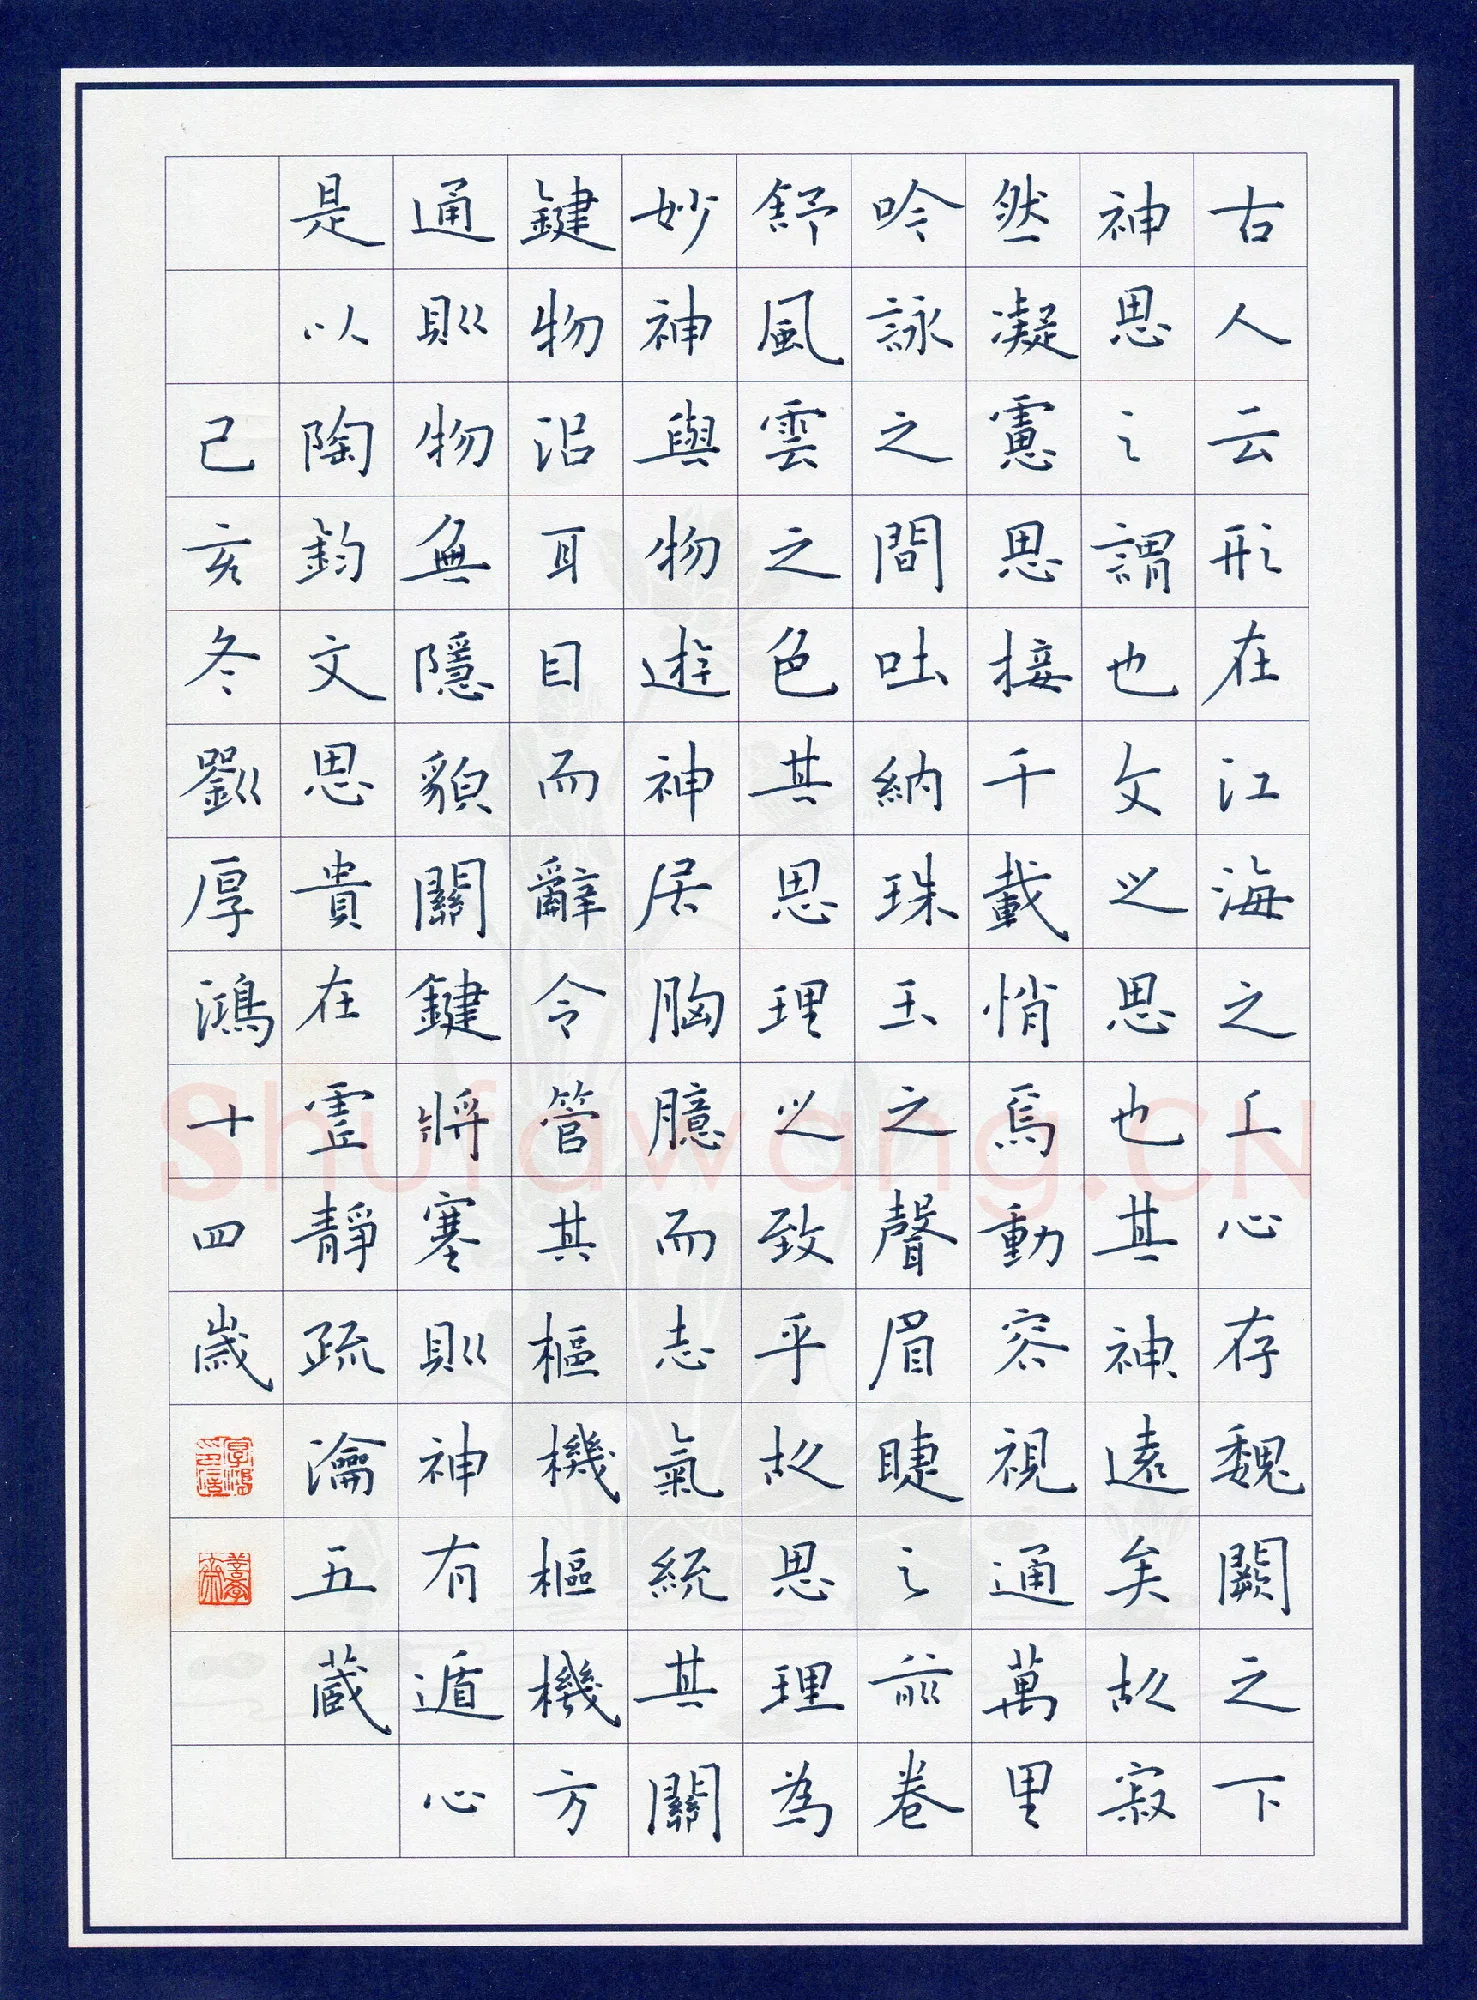 古人云形在江海之上心存魏闕之下
神思之謂也文之思也其神遠矣故寂
然凝慮思接千載悄焉動容視通萬里
吟詠之間吐納珠玉之聲眉睫之前卷
舒風雲之色其思理之致乎故思理為
妙神與物遊神居胸臆而志氣統其關
鍵物沿耳目而辭令管其樞機樞機方
通則物無隱貌關鍵將塞則神有遁心
是以陶鈞文思貴在虛靜疏瀹五藏
己亥冬劉厚鴻十四歲
Shufawang.CN